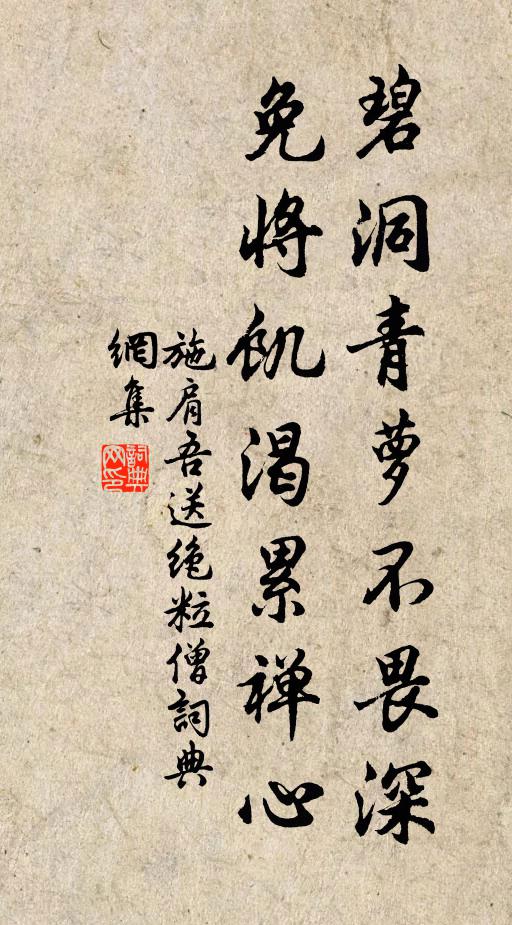 碧洞青萝不畏深
免将饥渴累禅心
施肩吾送绝粒僧詞典
網集
詞典網印